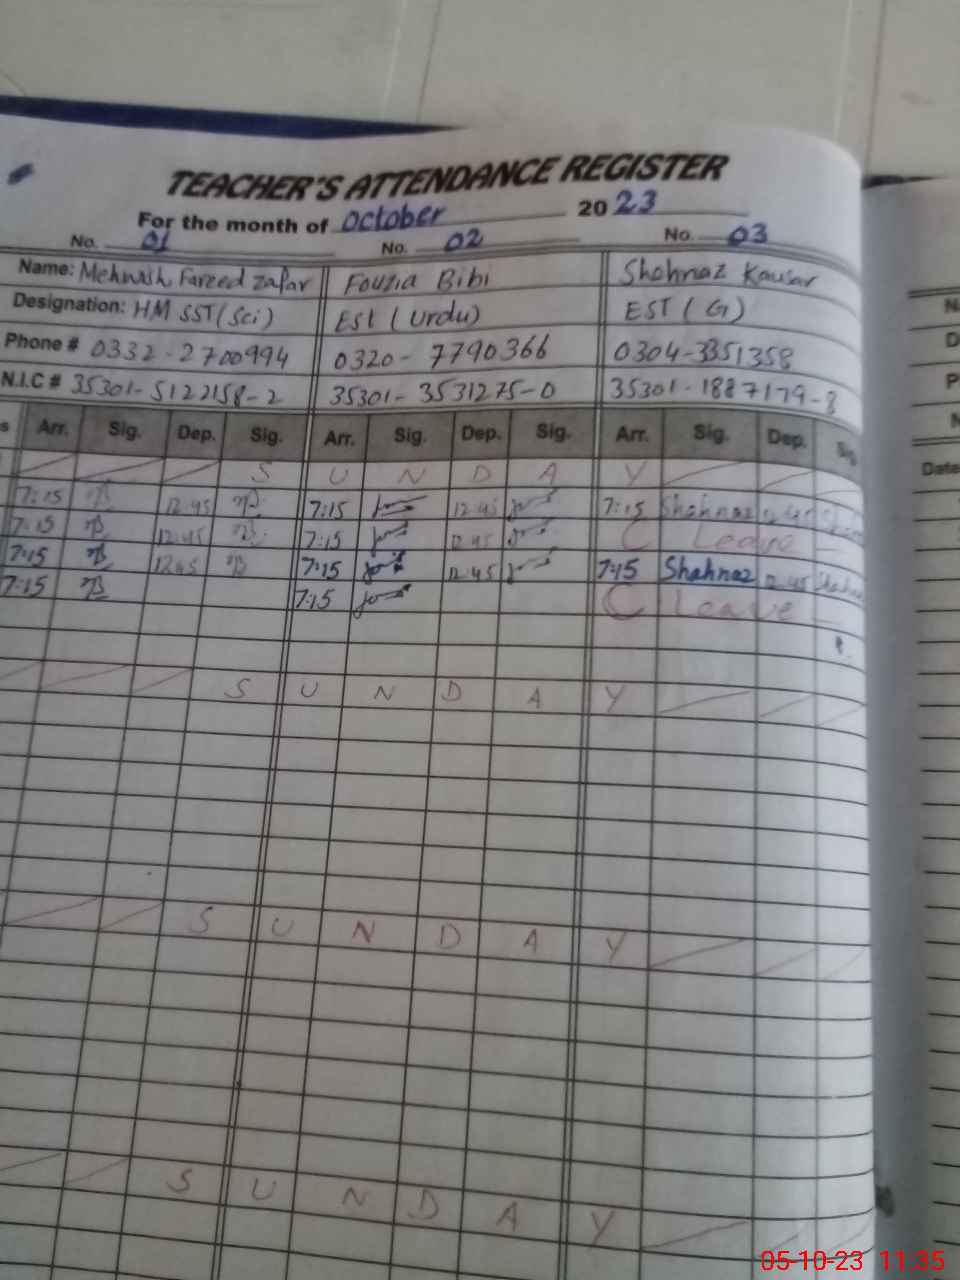 TEACHER'S ATTENDANCE REGISTER
For the month of October 2023
No. 01 No. 02 No. 03
Name: Mehwish Fareed Zafar Fouzia Bibi Shahnaz Kausar
Designation: HM SST (Sci) Est (Urdu) EST (G)
Phone # 0332-2700994 0320-7790366 0304-3351358
N.I.C # 35301-5122158-2 35301-3531275-0 35301-1887179-8
Arr. Sig. Dep. Sig. Arr. Sig. Dep. Sig. Arr. Sig. Dep. Sig
Date
S U N D A Y
7:15 12:45 7:15 12:45 7:15 Shahnaz 12:45
7:15 12:45 7:15 12:45 C Leave
7:15 12:45 7:15 12:45 7:15 Shahnaz 12:45
7:15 7:15 C Leave
S U N D A Y
S U N D A Y
S U N D A Y
05-10-23 11:35